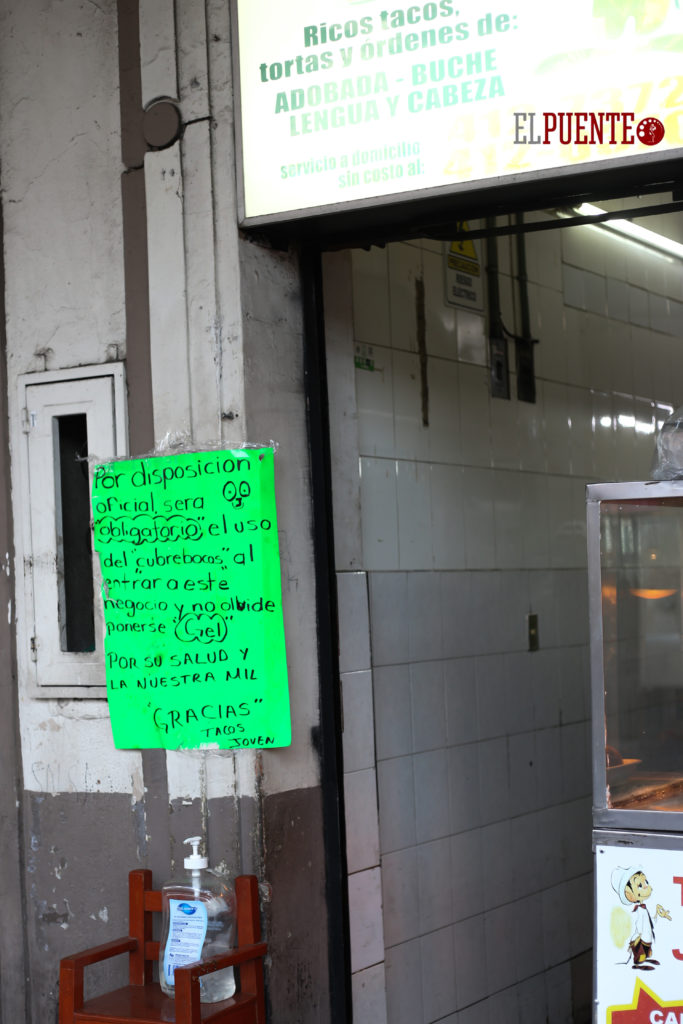 Ricos tacos,
tortas y órdenes de:
ADOBADA - BUCHE
LENGUA Y CABEZA
servicio a domicilio
sin costo al:
EL PUENTE
Por disposicion
oficial, sera
"obligatorio" el uso
del "cubrebocas" al
entrar a este
negocio y no olvide
ponerse "Gel"
POR SU SALUD Y
LA NUESTRA MIL
"GRACIAS"
TACOS
JOVEN